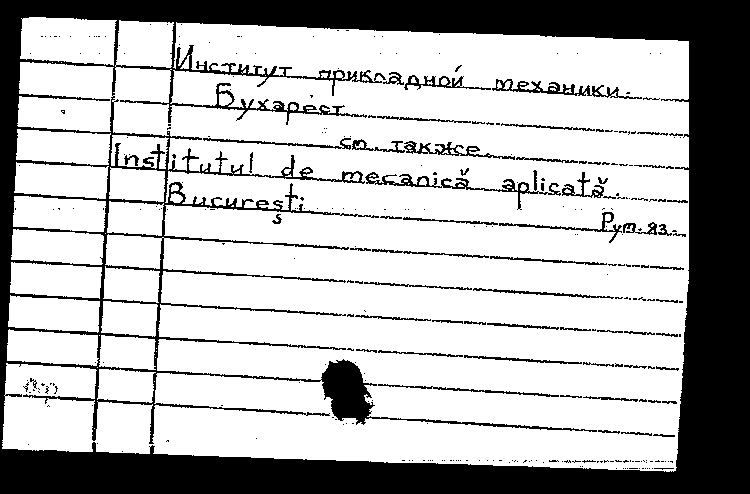 Институт прикладной механики.
Бухарест
см. также.
Institutul de mecanică aplicată.
Bucureşti
Рум. яз.